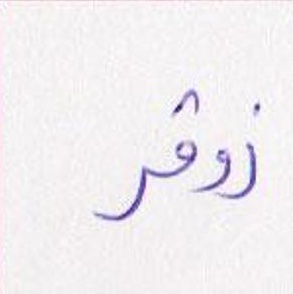 زوقر